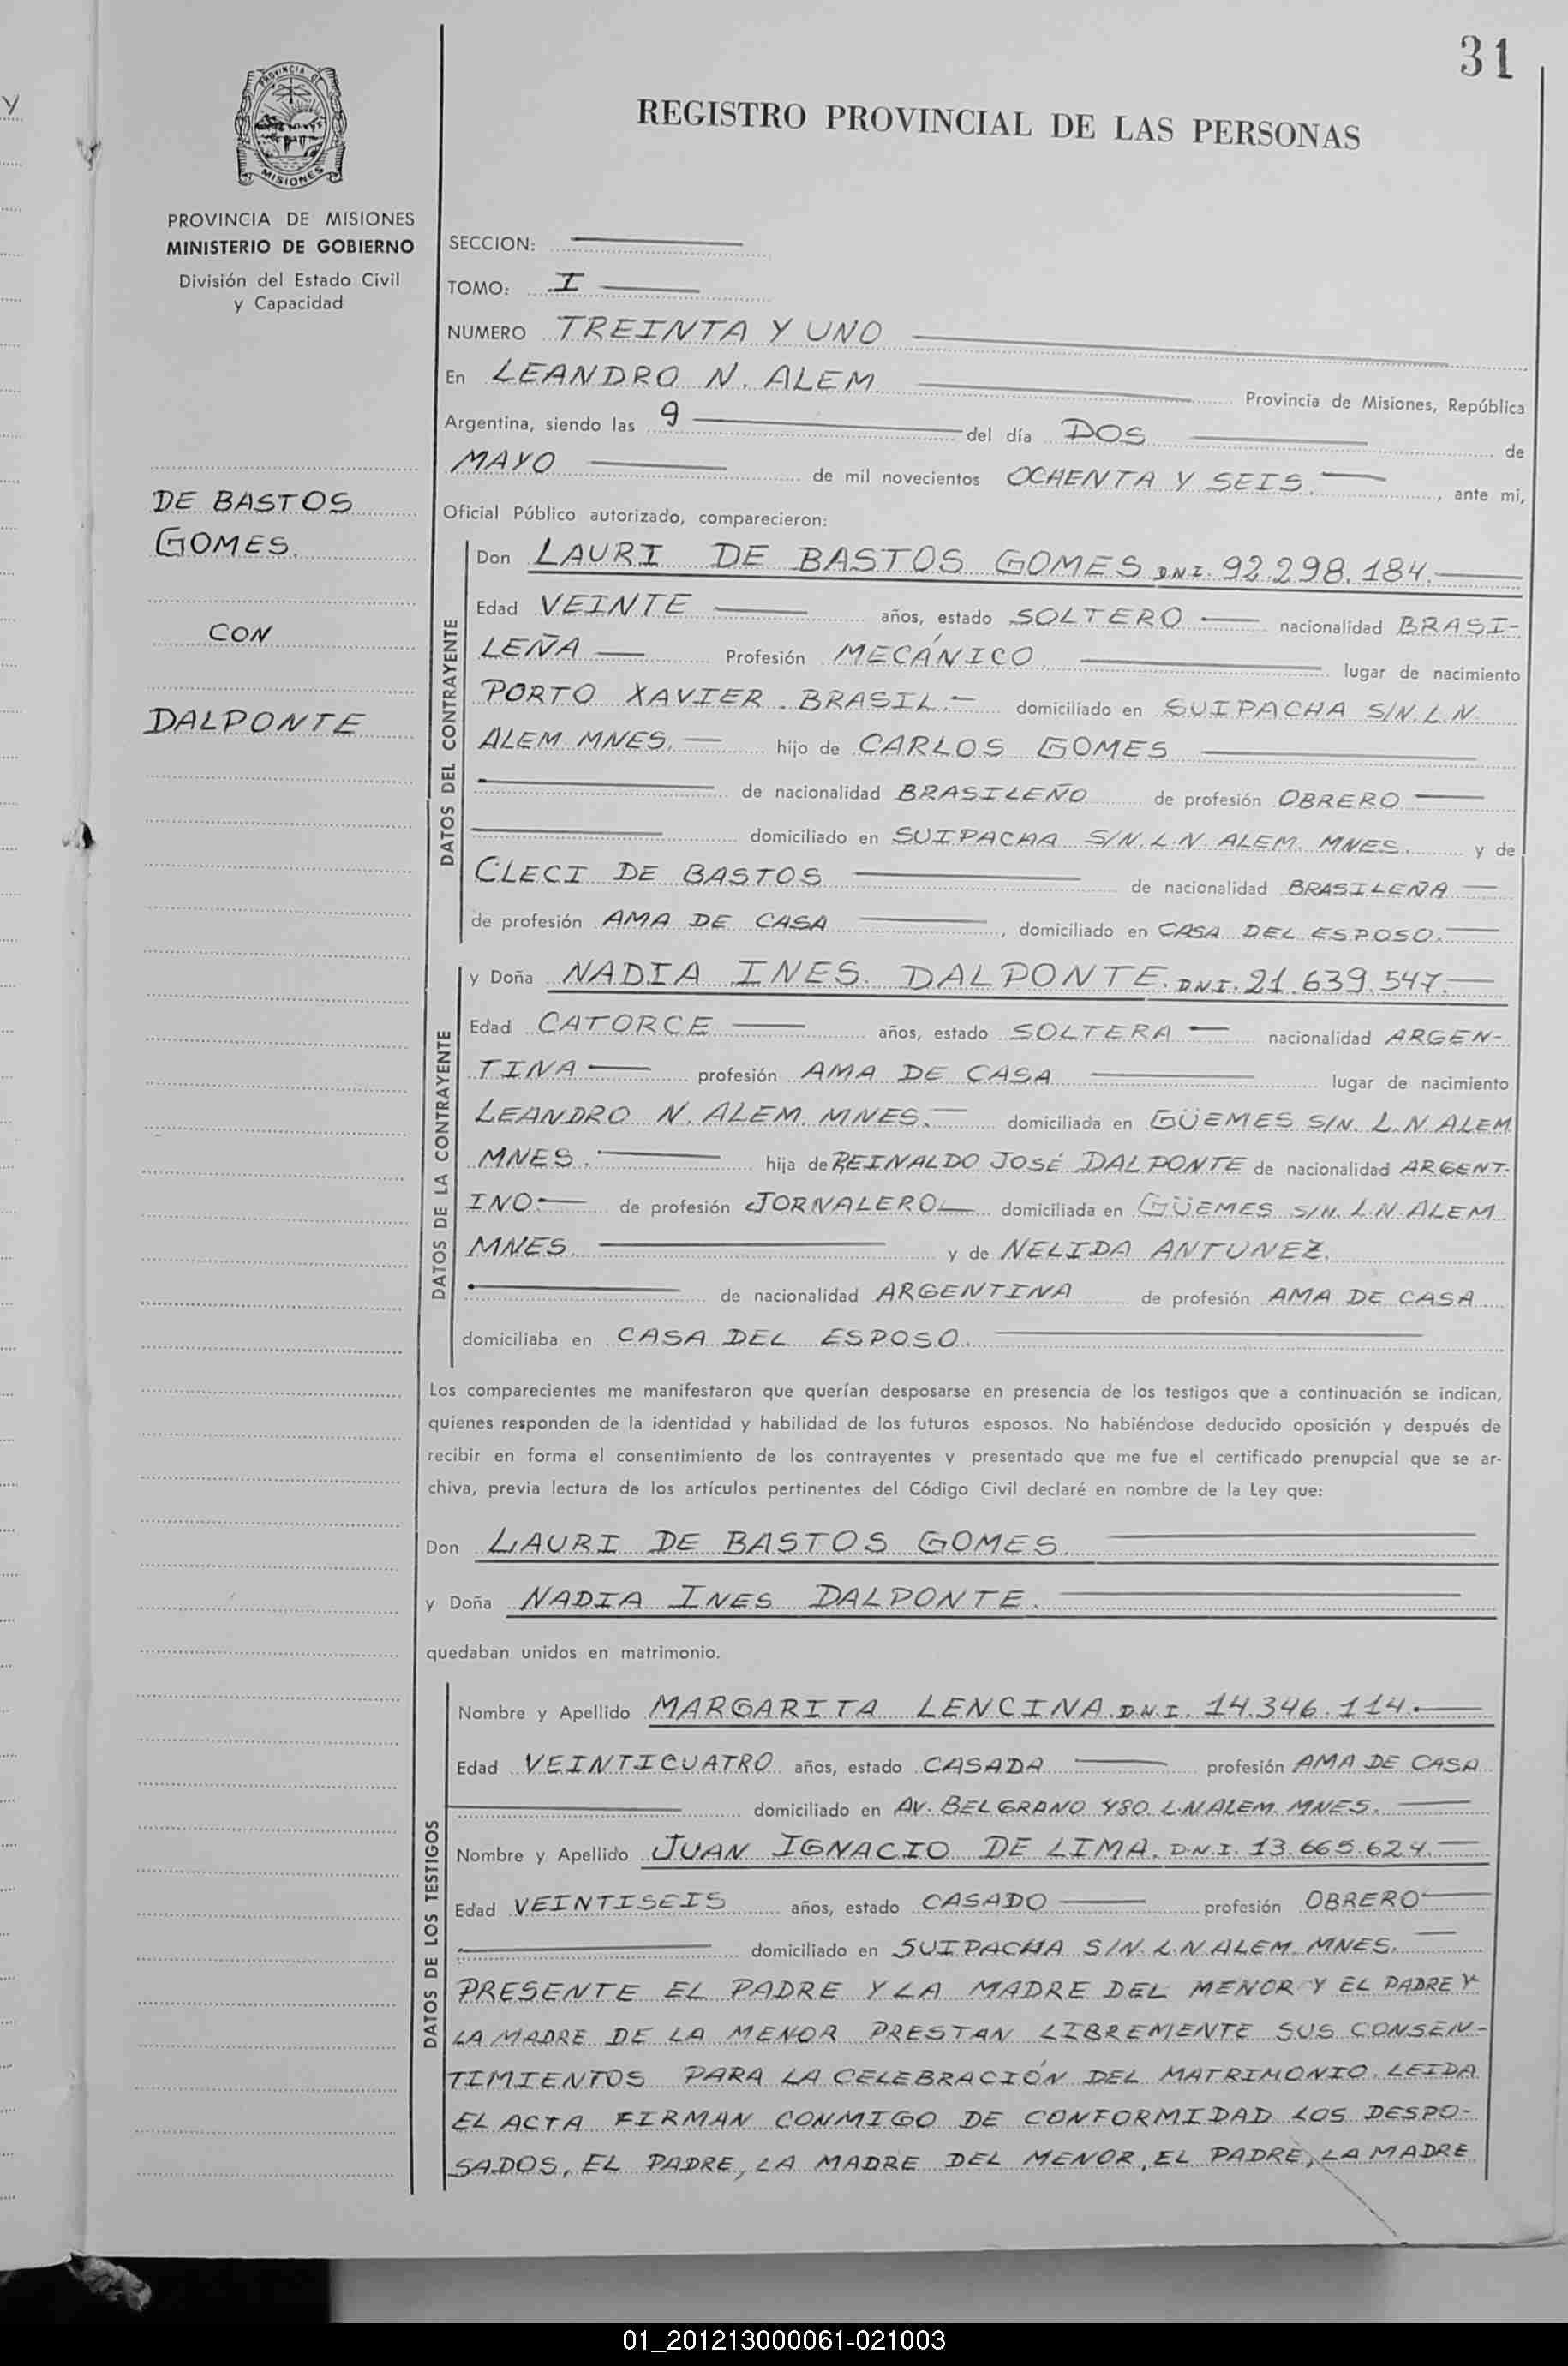 31
REGISTRO PROVINCIAL DE LAS PERSONAS
PROVINCIA DE MISIONES
PROVINCIA DE MISIONES
MINISTERIO DE GOBIERNO
División del Estado Civil
y Capacidad
Y
DE BASTOS
GOMES.
CON
DALPONTE
SECCION:
TOMO: I
NUMERO TREINTA Y UNO
En LEANDRO N. ALEM Provincia de Misiones, República
Argentina, siendo las 9 del día DOS de
MAYO de mil novecientos OCHENTA Y SEIS. , ante mi,
Oficial Público autorizado, comparecieron:
DATOS DEL CONTRAYENTE
Don LAURI DE BASTOS GOMES DNI. 92.298.184.
Edad VEINTE años, estado SOLTERO nacionalidad BRASI-
LEÑA Profesión MECÁNICO lugar de nacimiento
PORTO XAVIER. BRASIL. domiciliado en SUIPACHA S/N. L.N.
ALEM MNES. hijo de CARLOS GOMES
de nacionalidad BRASILEÑO de profesión OBRERO
domiciliado en SUIPACHA S/N. L.N. ALEM. MNES. y de
CLECI DE BASTOS de nacionalidad BRASILEÑA
de profesión AMA DE CASA , domiciliado en CASA DEL ESPOSO.
DATOS DE LA CONTRAYENTE
y Doña NADIA INES. DALPONTE. DNI. 21.639.547.
Edad CATORCE años, estado SOLTERA nacionalidad ARGEN-
TINA profesión AMA DE CASA lugar de nacimiento
LEANDRO N. ALEM. MNES. domiciliada en GÜEMES S/N. L.N ALEM
MNES. hija de REINALDO JOSÉ DALPONTE de nacionalidad ARGENT-
INO. de profesión JORNALERO domiciliada en GÜEMES S/N. L.N. ALEM
MNES. y de NELIDA ANTUNEZ.
de nacionalidad ARGENTINA de profesión AMA DE CASA
domiciliaba en CASA DEL ESPOSO.
Los comparecientes me manifestaron que querían desposarse en presencia de los testigos que a continuación se indican,
quienes responden de la identidad y habilidad de los futuros esposos. No habiéndose deducido oposición y después de
recibir en forma el consentimiento de los contrayentes y presentado que me fue el certificado prenupcial que se ar-
chiva, previa lectura de los artículos pertinentes del Código Civil declaré en nombre de la Ley que:
Don LAURI DE BASTOS GOMES.
y Doña NADIA INES DALPONTE.
quedaban unidos en matrimonio.
DATOS DE LOS TESTIGOS
Nombre y Apellido MARGARITA LENCINA D.N.I. 14.346.114.
Edad VEINTICUATRO años, estado CASADA profesión AMA DE CASA
domiciliado en AV. BELGRANO 480. L.N ALEM. MNES.
Nombre y Apellido JUAN IGNACIO DE LIMA. D.N.I. 13.665.624.
Edad VEINTISEIS años, estado CASADO profesión OBRERO
domiciliado en SUIPACHA S/N. L.N ALEM. MNES.
PRESENTE EL PADRE Y LA MADRE DEL MENOR Y EL PADRE Y
LA MADRE DE LA MENOR PRESTAN LIBREMENTE SUS CONSEN-
TIMIENTOS PARA LA CELEBRACIÓN DEL MATRIMONIO. LEIDA
EL ACTA FIRMAN CONMIGO DE CONFORMIDAD LOS DESPO-
SADOS, EL PADRE, LA MADRE DEL MENOR, EL PADRE, LA MADRE
01_201213000061-021003